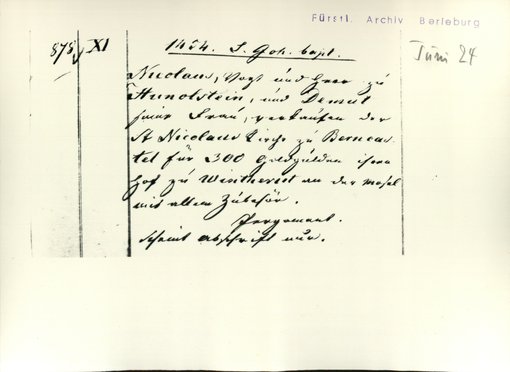 Fürstl. Archiv Berleburg
575 XI 1454. S. Joh. bapt. Juni 24
Nicolaus, Vogt und Herr zu
Hunolstein, und Demut
seine Frau, verkaufen der
St Nicolaus Kirche zu Berncas-
tel für 300 Goldgulden ihren
Hof zu Wintherich an der Mosel
mit allem Zubehör.
Pergament.
Scheint Abschrift nur.